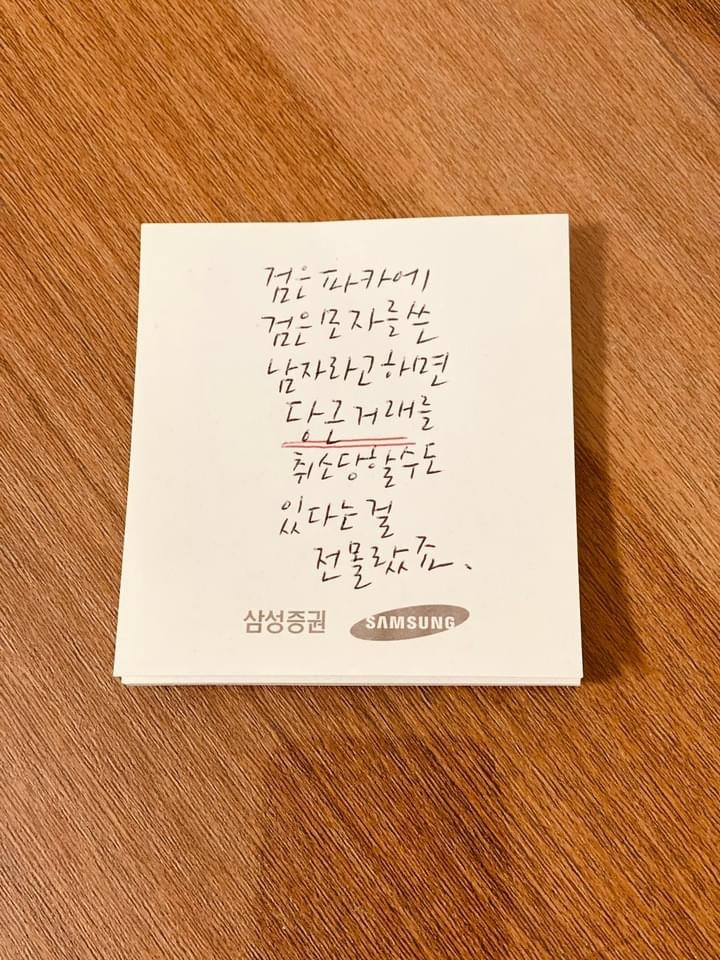 검은 파카에
검은 모자를 쓴
남자라고 하면
당근거래를
취소당할 수도
있다는 걸
전 몰랐죠.
삼성증권 SAMSUNG